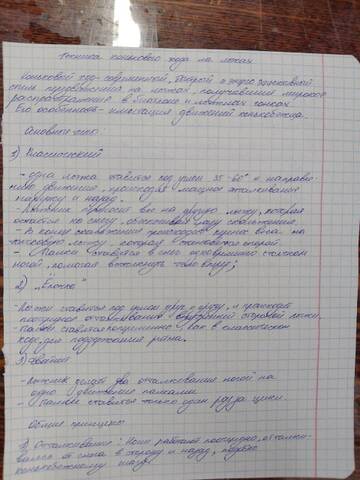 Техника конькового хода на лыжах
Коньковый ход - современный, быстрый и энергозатратный
стиль передвижения на лыжах, получивший широкое
распространение в биатлоне и лыжных гонках.
Его особенность - имитация движений конькобежца.
Основные
1) Классический
- одна лыжа ставится под углом 35-60° к направле-
нию движения, происходит мощное отталкивание
наружу и назад.
- Лыжник переносит вес на другую лыжу, которая
скользит по снегу, обеспечивая фазу скольжения.
- В конце скольжения происходит перенос веса на
толчковую лыжу, которая становится опорой.
- Палки ставятся в снег одновременно с толчком
ногой, помогая вытолкнуть тело вперёд;
2) „Ёлочка"
- Лыжи ставятся под углом друг к другу, и происходит
поочерёдное отталкивание внутренней стороной лыжи.
- палки ставятся попеременно, как в классическом
ходе, для поддержания ритма.
3)
- Лыжник делает два отталкивания ногой на
одно движение палками.
- Палки ставятся только один раз за цикл.
Общие принципы:
1) Отталкивание: Ноги работают поочерёдно, отталки-
ваясь от снега в сторону и назад, подобно
конькобежному шагу.